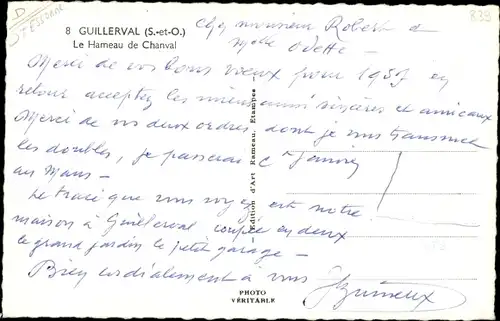 D
839
8 GUILLERVAL (S.-et-O.)
Le Hameau de Chanval
Cher monsieur Robert &
Melle Odette -
Merci de vos bons vœux pour 1957 en
retour acceptez les miens aussi sincères et amicaux
Merci de vos deux ordres dont je vous transmet
les doubles, je passerai ct Janvier
au Mans -
Le tracé que vous voyez est notre
maison à Guillerval coupée en deux
le grand jardin le petit garage -
Bien cordialement à vous
Édition d'Art Rameau, Étampes
PHOTO
VÉRITABLE